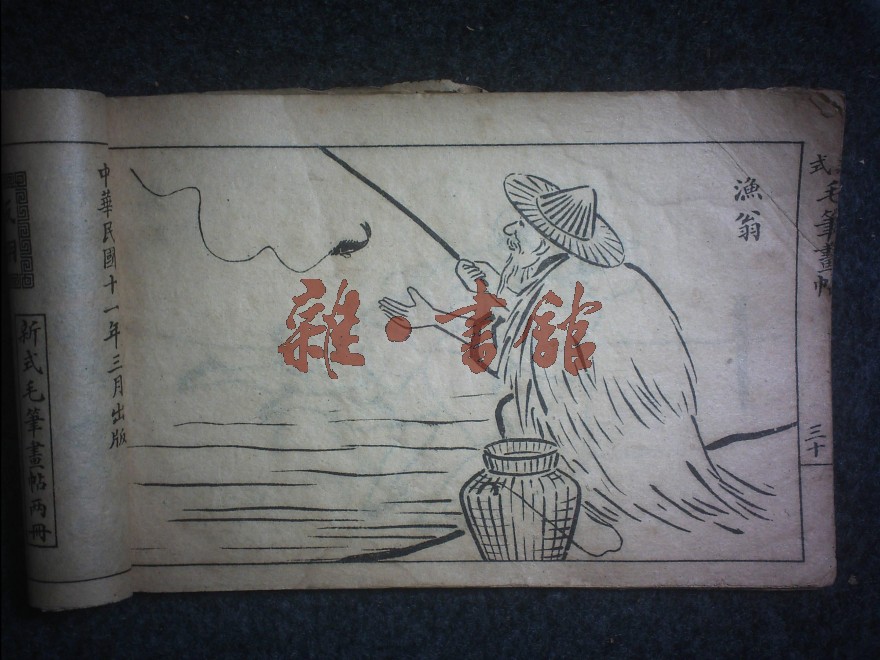 漁翁
式毛筆畫帖
三十
雜·書館
中華民國十一年三月出版
新式毛筆畫帖兩冊